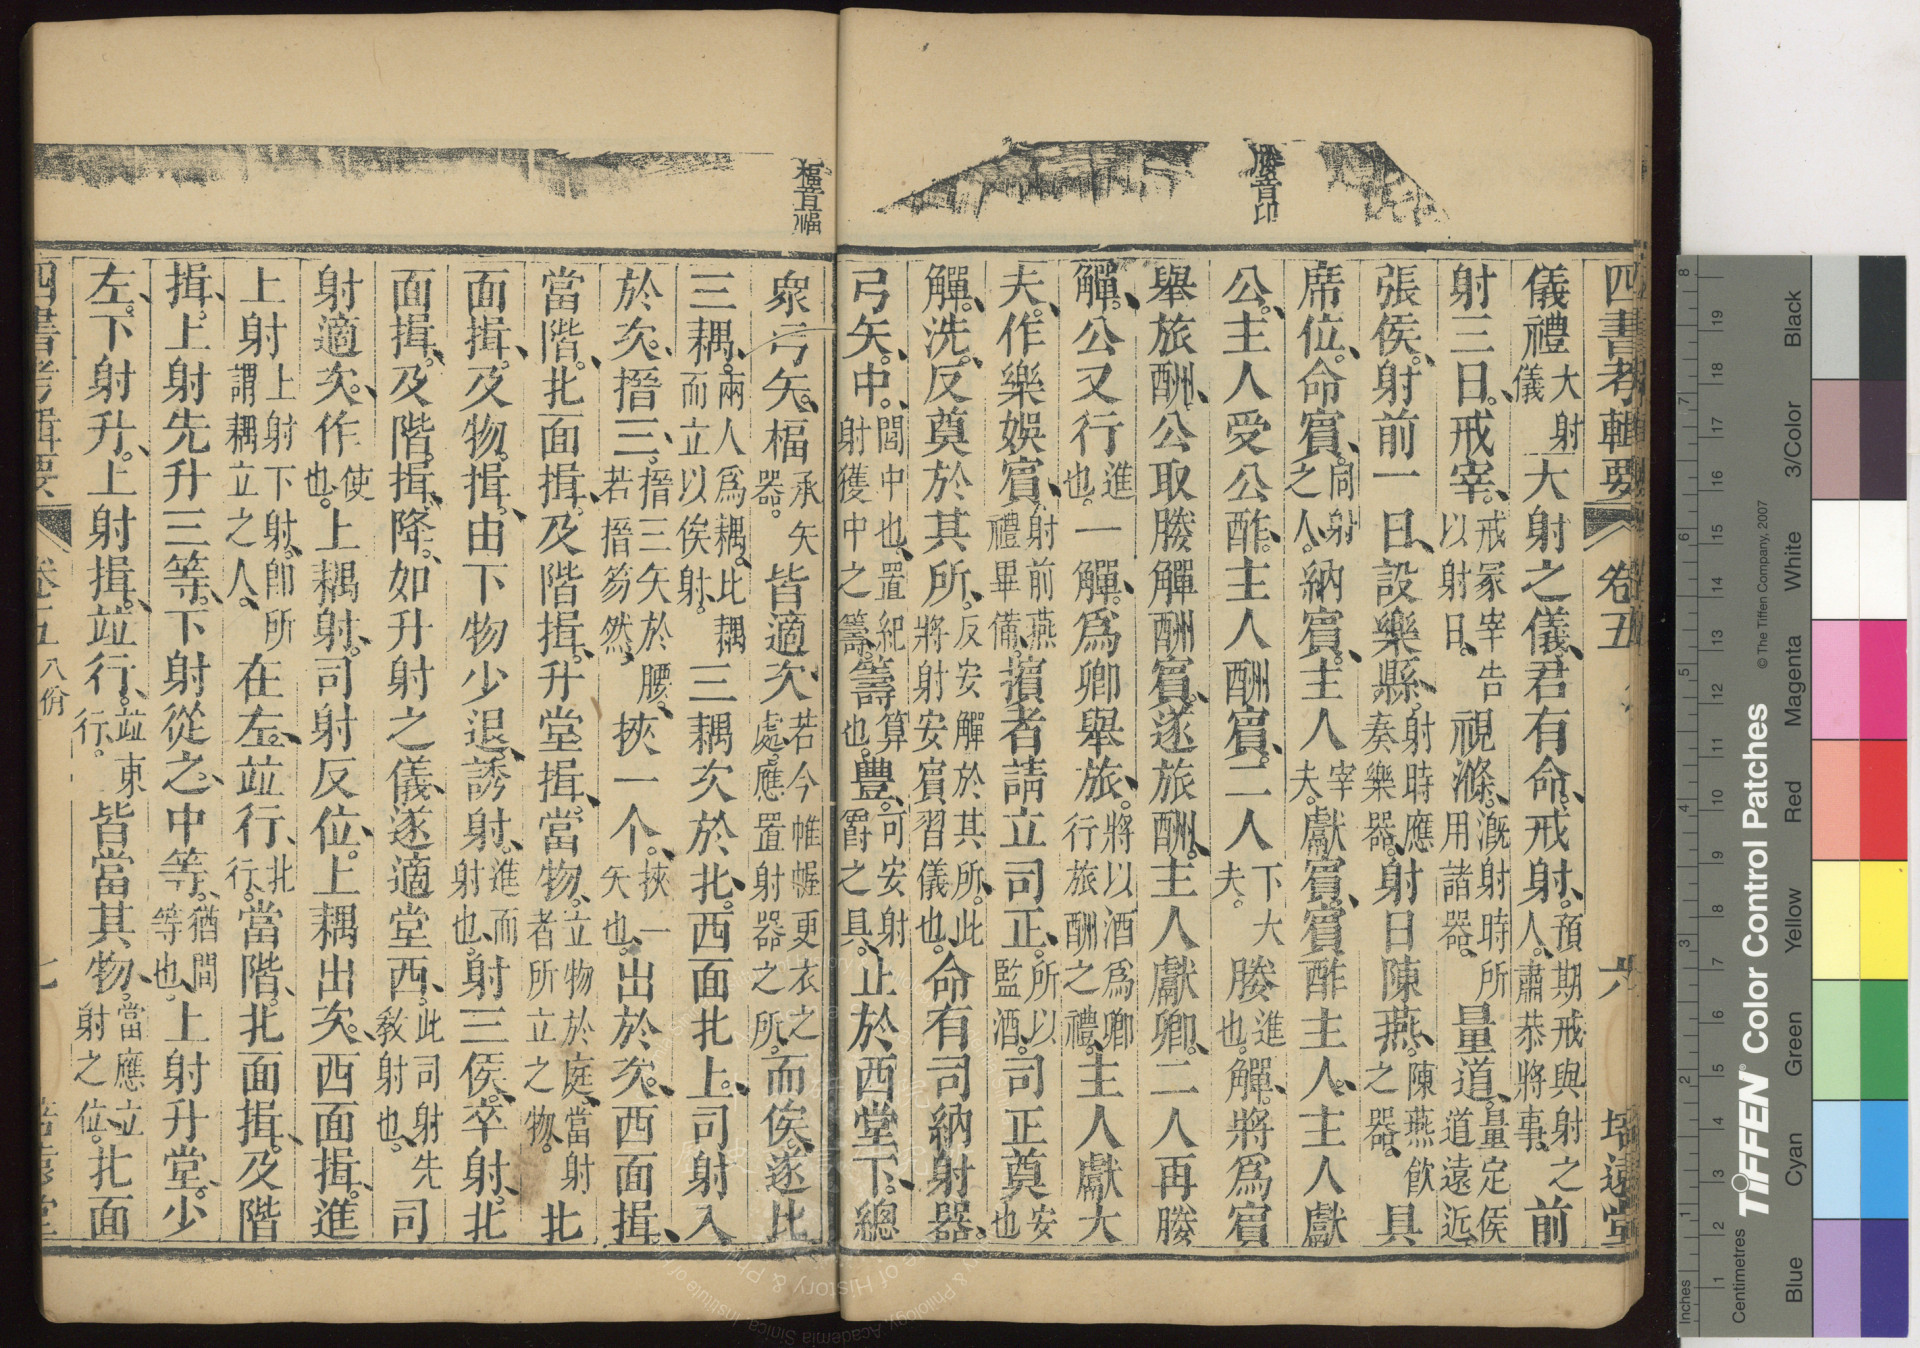 四書考輯要 卷五 六 培遠堂
媵音印
儀禮大射儀大射之儀、君有命、戒射。預期戒與射之人。肅恭將事、前
射三日。戒宰。戒冢宰告以射日。視滌。溉射時所用諸器。量道。量定侯道遠近。
張侯。射前一日、設樂縣、射時應奏樂器。射日陳燕、陳燕飲之器、具
席位、命賓、同射之人。納賓、主人宰夫。獻賓、賓酢主人、主人獻
公。主人受公酢。主人酬賓。二人下大夫。媵進也。觶、將爲賓
舉旅酬、公取媵觶酬賓、遂旅酬。主人獻卿。二人再媵
觶。公又行進也。一觶、爲卿舉旅、將以酒爲卿行旅酬之禮。主人獻大
夫。作樂娛賓、射前燕禮畢備、擯者請立司正、所以監酒。司正奠安也
觶、洗。反奠於其所、反安觶於其所、此將射安賓習儀也。命有司納射器。
弓矢、中。閭中也、置紀射獲中之籌。籌算也。豐、可安射爵之具。止於西堂下。總
楅音福
衆弓矢。楅承矢器。皆適次若今帷幄更衣之處。應置射器之所。而俟。遂比
三耦。兩人爲耦。比耦而立以俟射。三耦次於北。西面北上。司射入
於次。搢三、搢三矢於腰、若搢笏然、挾一个。挾一矢也。出於次。西面揖、
當階、北面揖、及階揖、升堂揖。當物、立物於庭、當射者所立之物。北
面揖、及物揖、由下物少退、誘射。進而射也、射三侯。卒射、北
面揖、及階揖、降、如升射之儀、遂適堂西、此司射先教射也。司
射適次、作使也。上耦射。司射反位。上耦出次、西面揖、進
上射上射下射、即所謂耦立之人、在左。並行、北行、當階、北面揖、及階
揖。上射先升三等、下射從之、中等、猶間等也、上射升堂。少
左、下射升。上射揖、並行。並東行。皆當其物、當應立射之位。北面
四書考輯要 卷五 八佾 七 培遠堂
TIFFEN Color Control Patches © The Tiffen Company, 2007
Inches 1 2 3 4 5 6 7 8
Centimetres 1 2 3 4 5 6 7 8 9 10 11 12 13 14 15 16 17 18 19
Blue Cyan Green Yellow Red Magenta White 3/Color Black